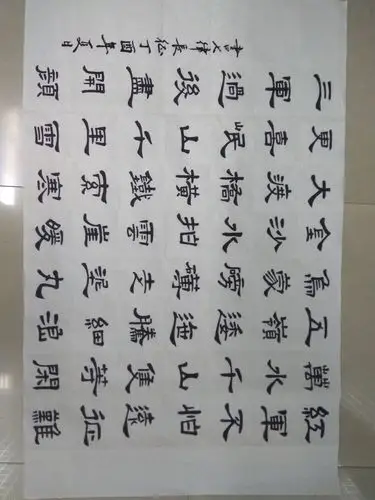 紅軍不怕遠征難
萬水千山隻等閑
五嶺逶迤騰細浪
烏蒙磅礴走泥丸
金沙水拍雲崖暖
大渡橋橫鐵索寒
更喜岷山千里雪
三軍過後盡開顏
長征丁酉年夏日